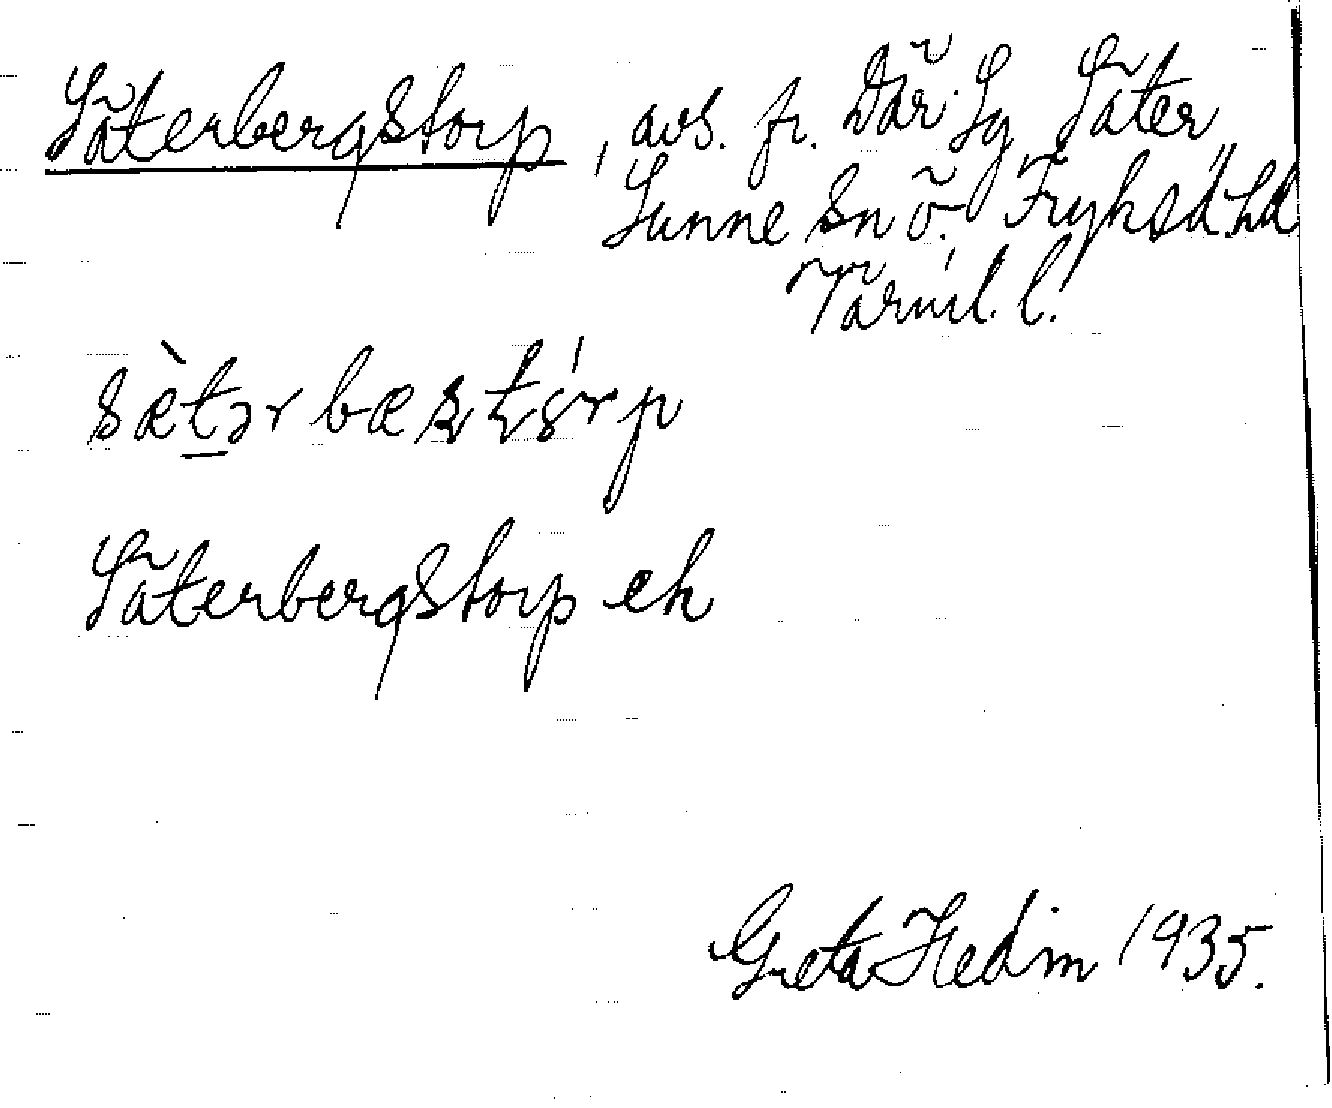 Säterbergstorp, avs. fr. Där. Lg Säter,
Sunne sn ö. Fryksd. hd
Värml. l.
sæ̀tər bæʂʈórp
Säterbergstorp ek
Greta Hedin 1935.